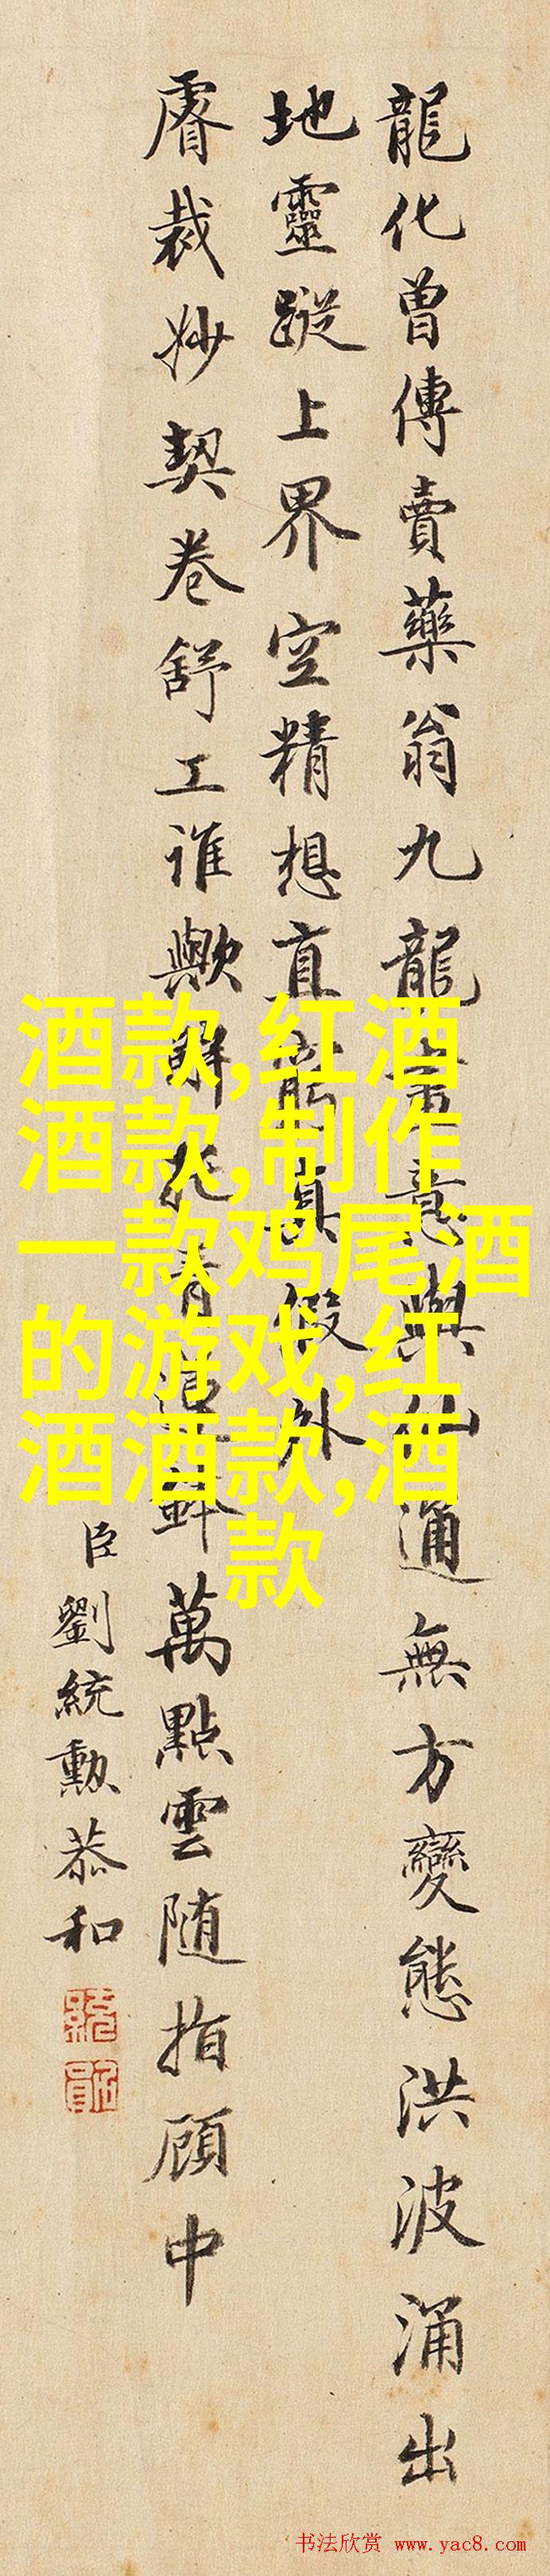 龍化曾傳賣藥翁九龍畫意與仙通無方變態洪波涌出
地靈蹤上界空精想直龍真假外
睿裁妙契卷舒工誰歟解
萬點雲随指顧中
臣劉統勳恭和
酒款,红酒
酒款,制作
一款鸡尾酒
的游戏,红
酒酒款,酒
款
书法欣赏 www.yac8.com